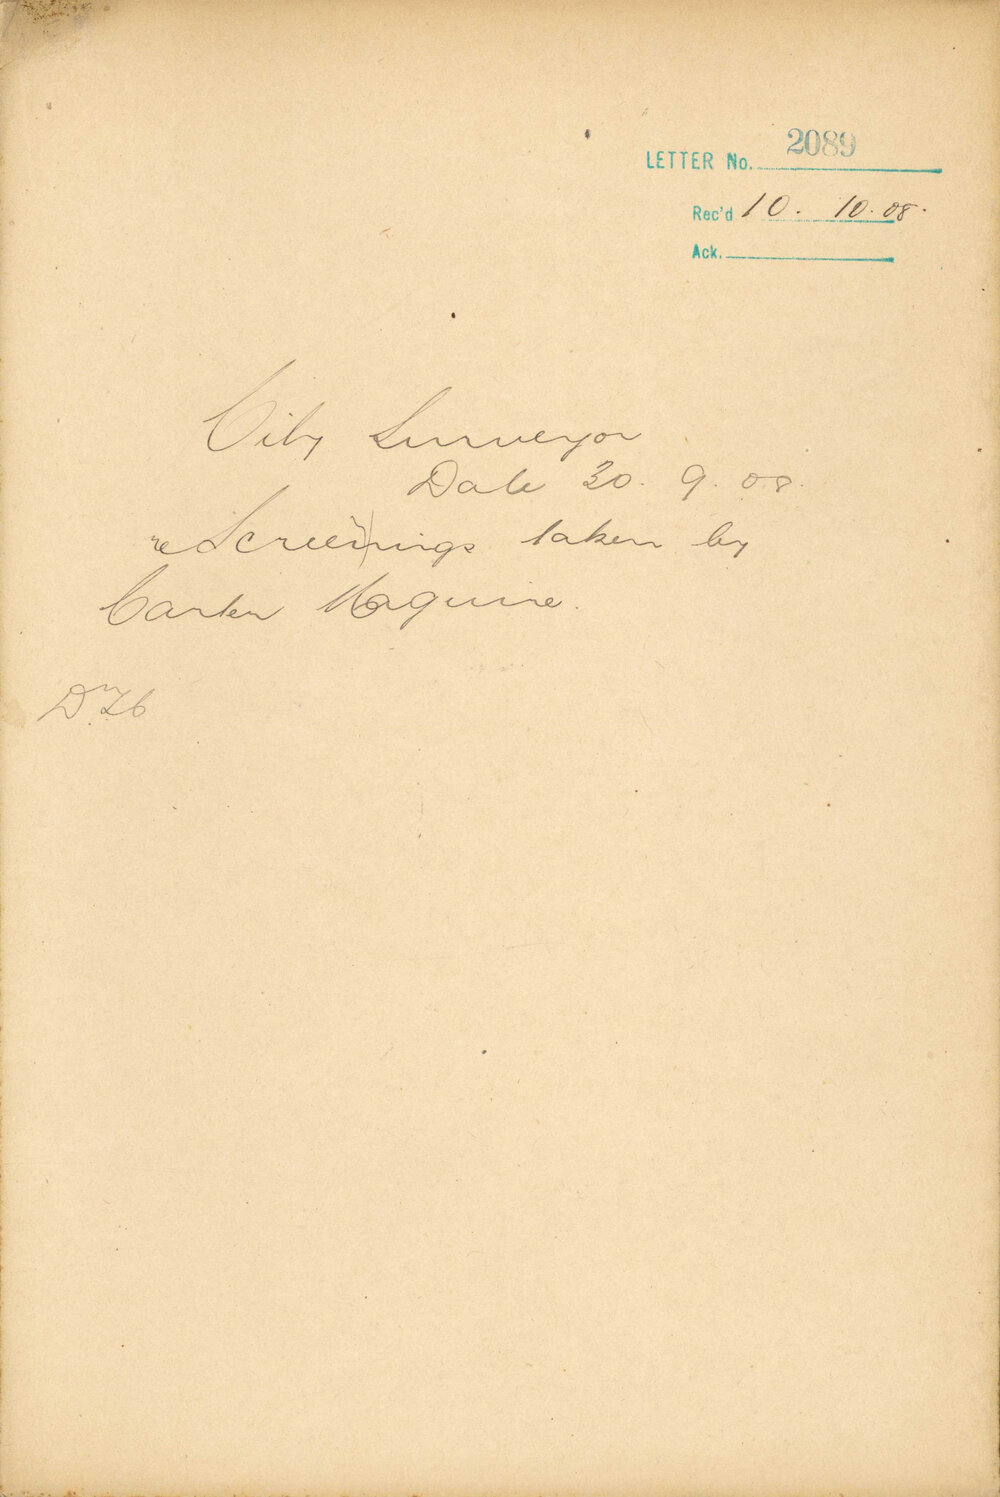 LETTER No. 2089
Rec'd 10. 10. 08.
Ack.
City Surveyor
Date 30. 9. 08.
re Screenings taken by
Carter Maguire.